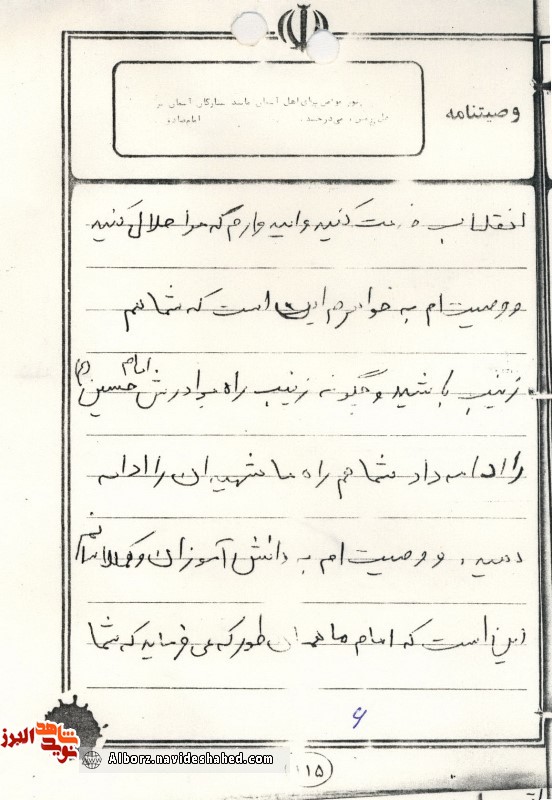 وصیتنامه
مانند ستارگان آسمان
انقلاب خدمت کنید و امیدوارم که مرا حلال کنید
و وصیت ام به خواهرم این است که شما هم
زینب باشید و چگونه زینب راه برادرش امام حسین (ع)
را ادامه داد شما هم راه ما شهیدان را ادامه
دهید . و وصیت ام به دانش آموزان و همکلاسانم
این است که امام ما همان طور که می فرماید که شما
۶
۱۵
شاهد
نوید
البرز
Alborz.navideshahed.com